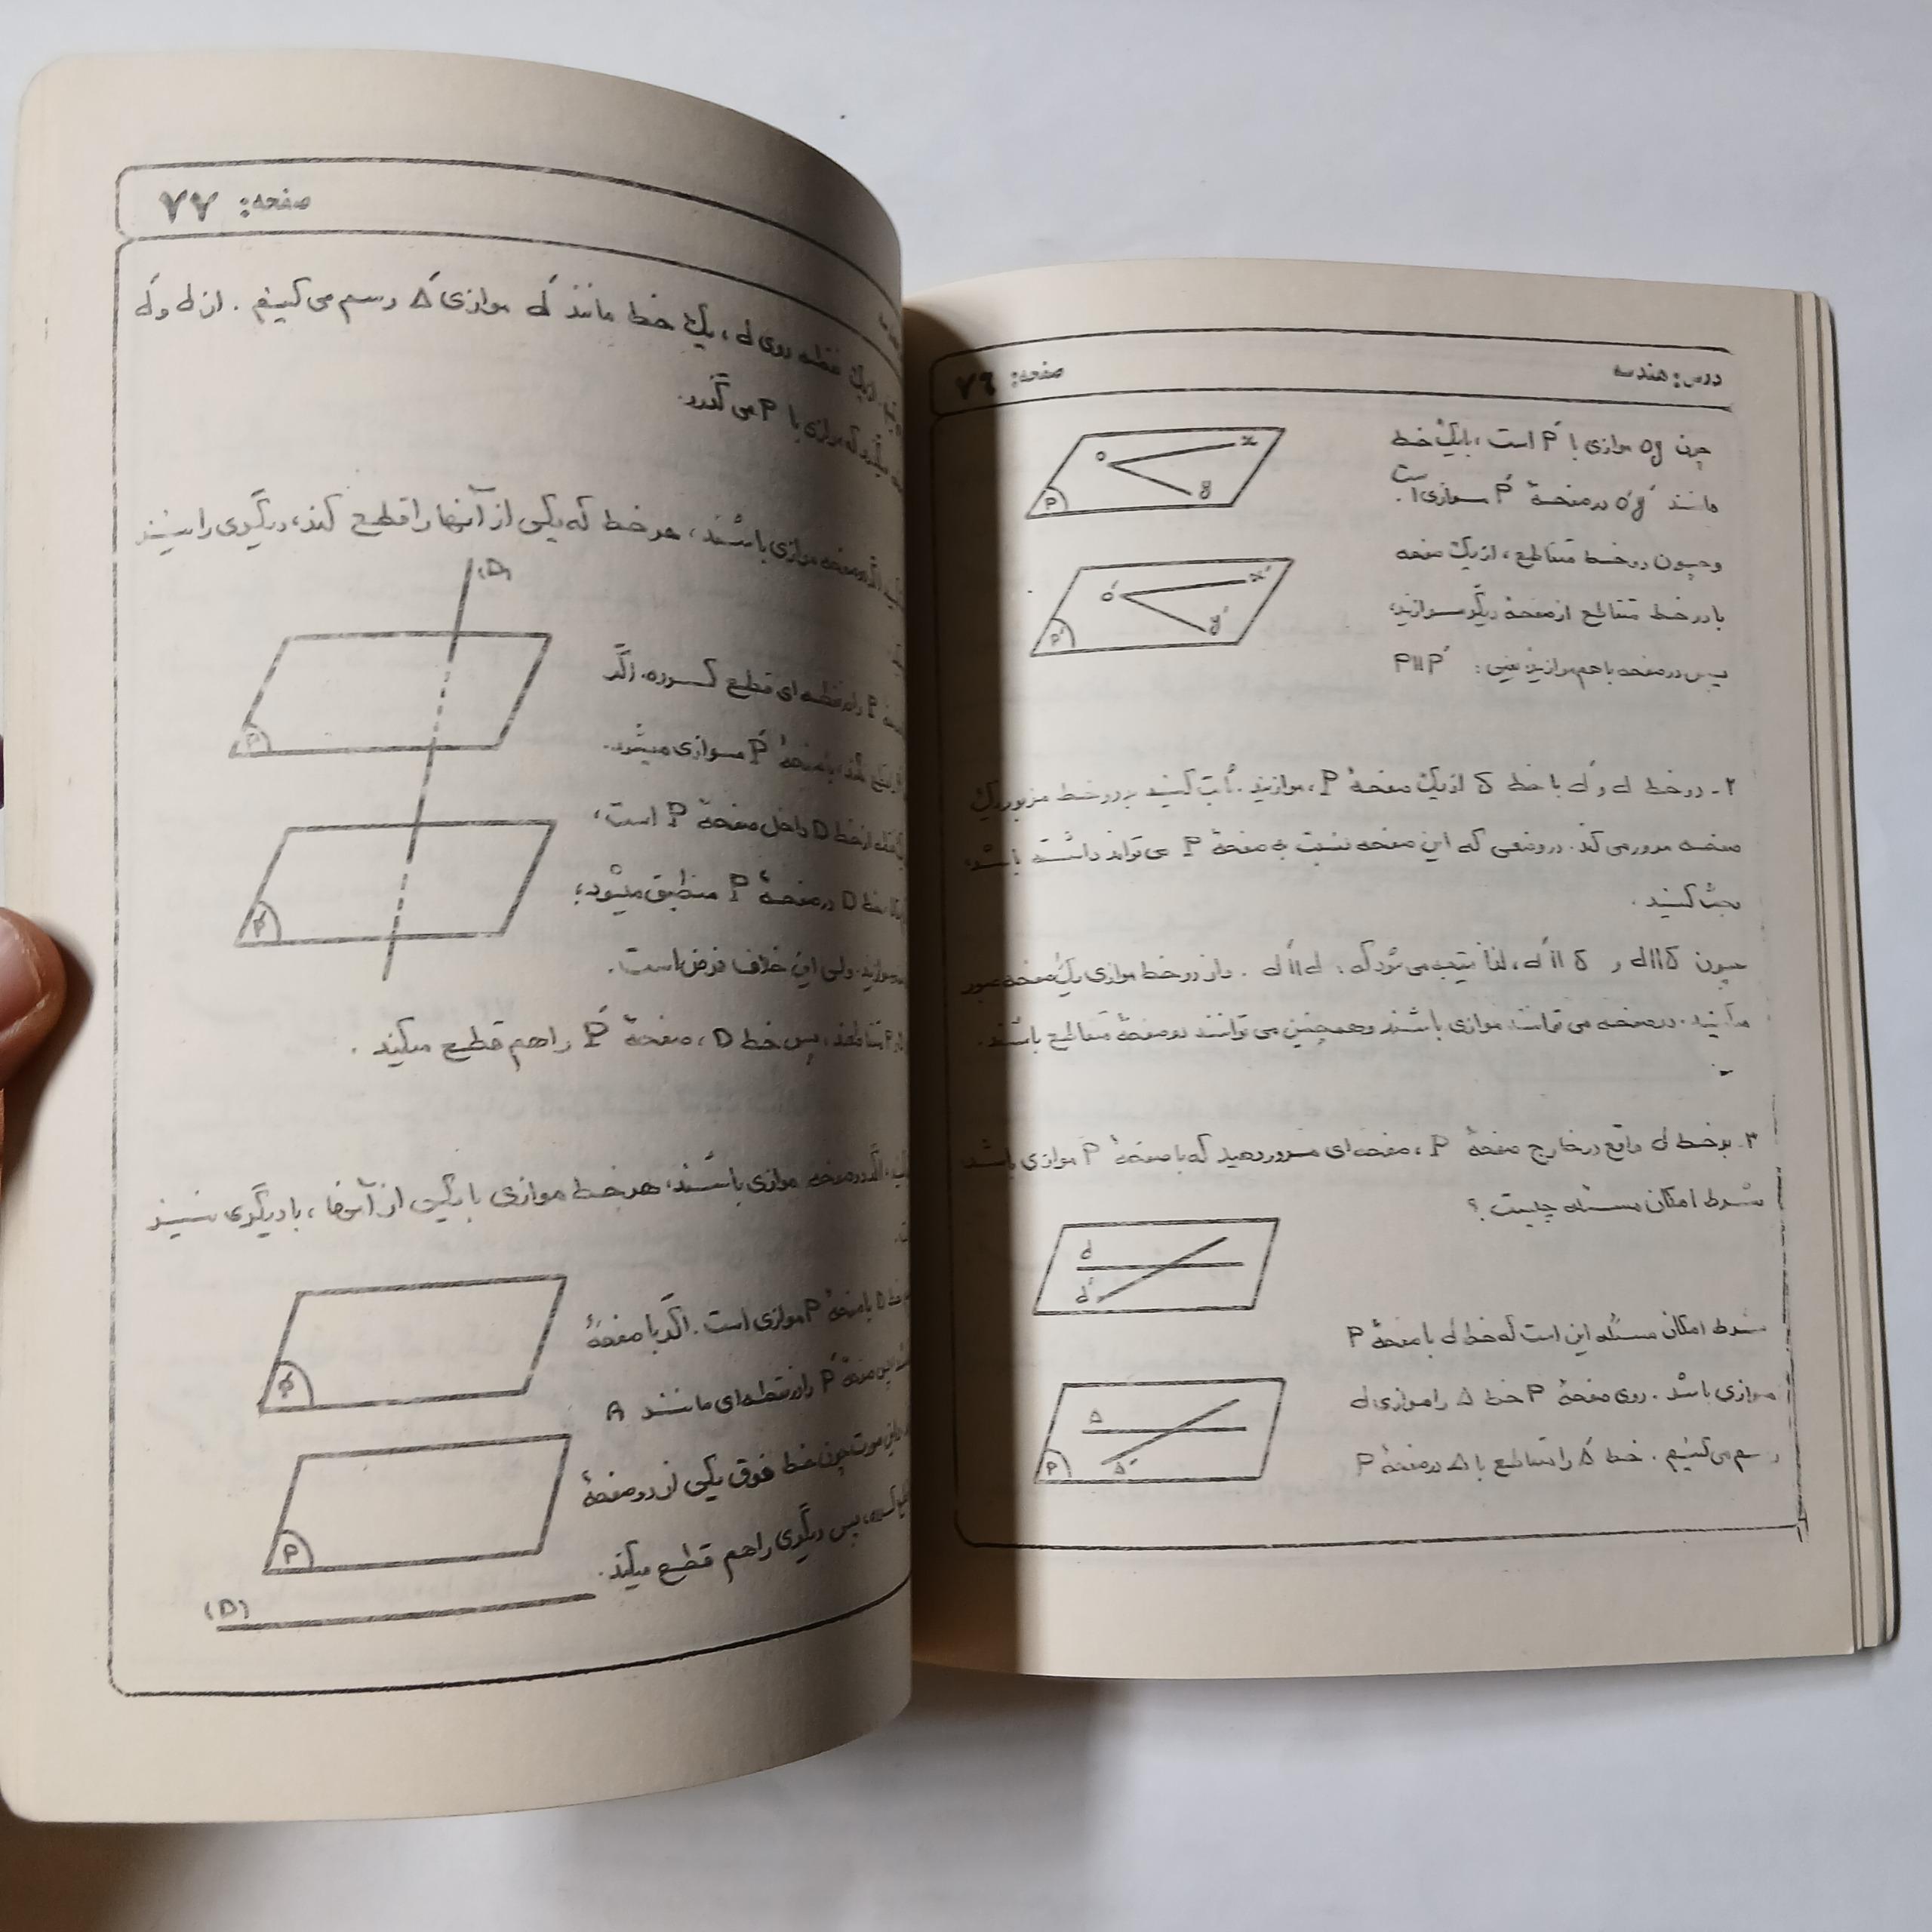 درس: هندسه
صفحه: ۷۶
چون oy موازی با P′ است، با یک خط
مانند o′y′ در صفحهٔ P′ موازی است.
و چون دو خط متقاطع، از یک صفحه
با دو خط متقاطع از صفحهٔ دیگر موازیند،
پس دو صفحه با هم موازیند یعنی: P||P′
o x y P
o′ x′ y′ P′
۲ـ دو خط d و d′ با خط δ از یک صفحهٔ P، موازیند. ثابت کنید بر دو خط مزبور یک
صفحه مرور می کند. در وضعی که این صفحه نسبت به صفحهٔ P می تواند داشته باشد،
بحث کنید.
چون d||δ و d′||δ، لذا نتیجه می شود که: d||d′. و از دو خط موازی یک صفحه عبور
دو صفحه می توانند موازی باشند و همچنین می توانند دو صفحهٔ متقاطع باشند.
۳ـ بر خط d واقع در خارج صفحهٔ P، صفحه ای مرور دهید که با صفحهٔ P موازی باشد
شرط امکان مسئله چیست؟
d
d′
شرط امکان مسئله این است که خط d با صفحهٔ P
موازی باشد. روی صفحهٔ P خط Δ را موازی d
رسم می کنیم. خط Δ′ را متقاطع با Δ در صفحهٔ P
Δ
Δ′
P
صفحه: ۷۷
نقطه روی d، یک خط مانند d′ موازی Δ′ رسم می کنیم. از d و d′
که موازی با P می گذرد.
صفحه موازی باشند، هر خط که یکی از آنها را قطع کند، دیگری را نیز
(D)
P را در نقطه ای قطع کرده. اگر
با صفحهٔ P′ موازی میشود.
از خط D داخل صفحهٔ P است،
خط D در صفحهٔ P منطبق میشود؛
ولی این خلاف فرض است.
پس خط D، صفحهٔ P′ را هم قطع میکند.
P
P′
اگر دو صفحه موازی باشند، هر خط موازی با یکی از آنها، با دیگری نیز
با صفحهٔ P موازی است. اگر با صفحهٔ
این صفحهٔ P′ را در نقطه ای مانند A
صورت چون خط فوق یکی از دو صفحهٔ
پس دیگری را هم قطع میکند.
P′
P
(D)